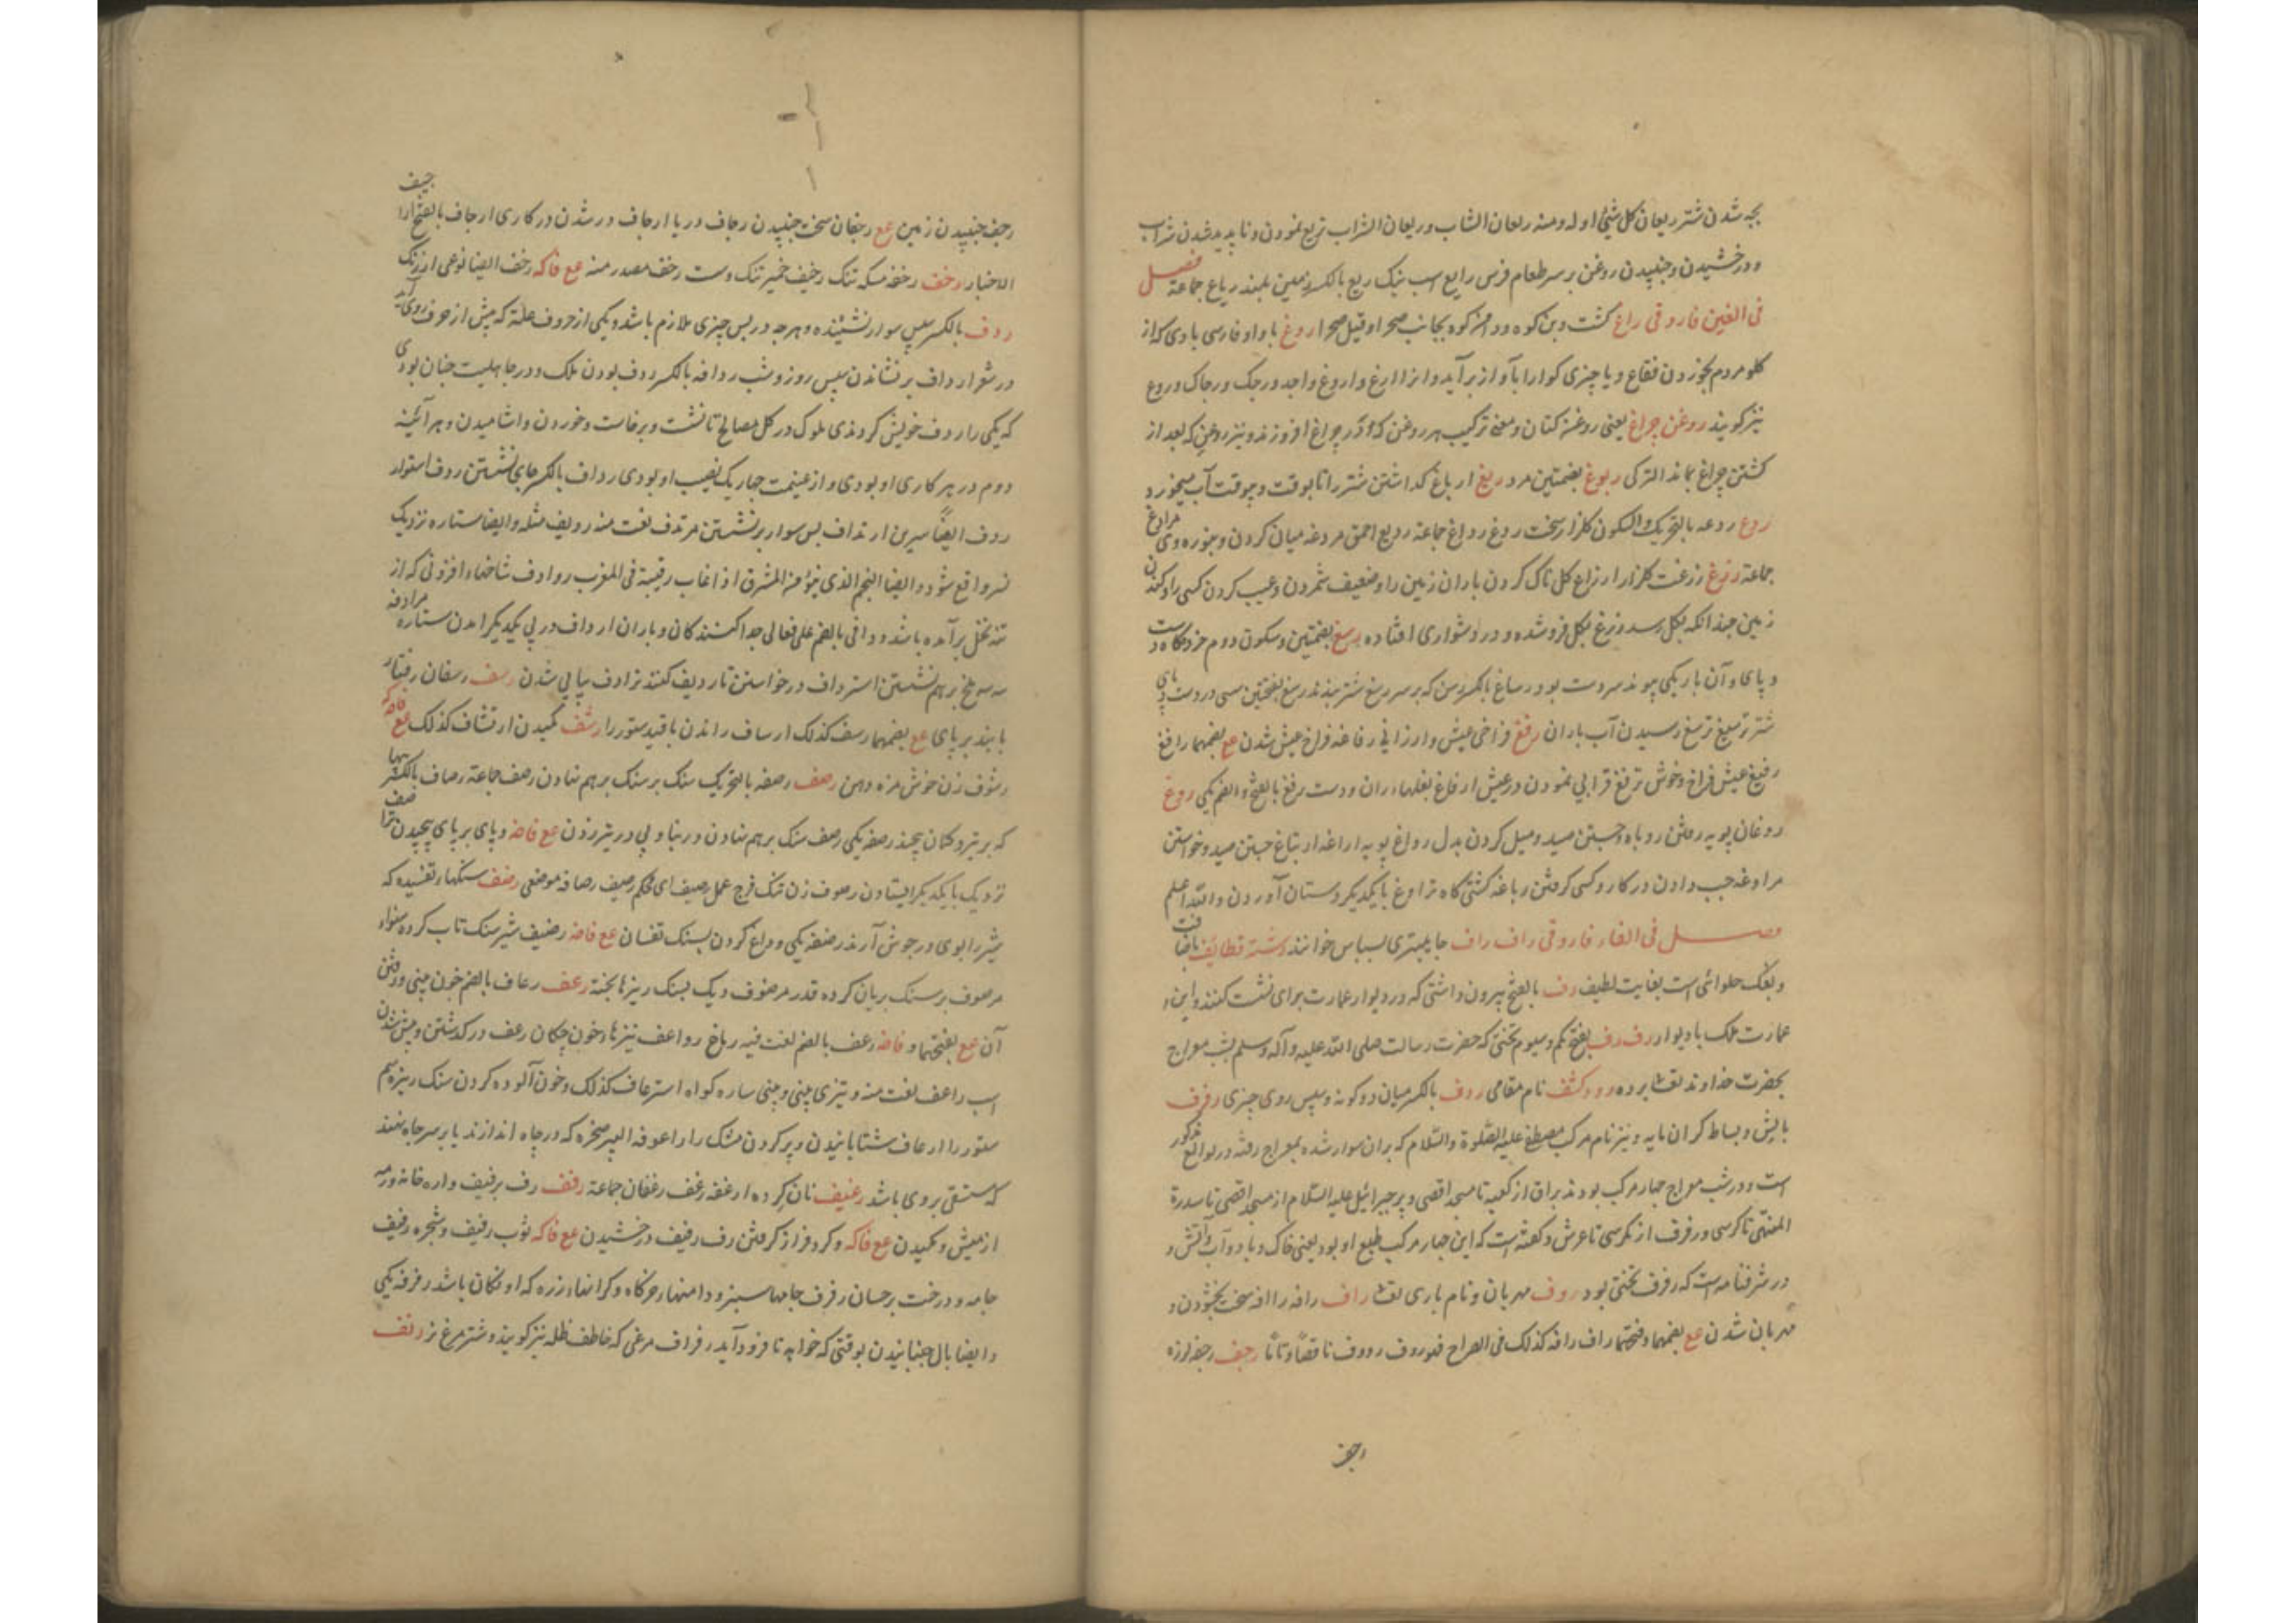 بچه شدن شتر ریعان کل شیٔ اوله ومنه ریعان الشاب وریعان الشراب تریع نمودن وناپدید شدن شراب
ودرخشیدن وجنبیدن روغن بر سر طعام فرس رایع اسب نیک ریع بالکسر زمین بلند ریاع جماعة فصل
فی الغین فاروقی راغ کشت وبن کوه ودامن کوه بجانب صحرا وقیل صحرا روغ با واو فارسی بادی که از
کلو مردم بخوردن فقاع ویا چیزی کوارا بآواز برآید وانرا آریغ واروغ واجد ورجک ورجاک وروغ
نیز کویند روغن چراغ یعنی روغن کتان ومعنی ترکیب هر روغن که در چراغ افروزند ونیز روغن که بعد از
کشتن چراغ بماند الترکی ربوغ بضمتین مرد ربغ ارباغ کذاشتن شتر را تا بوقت وبیوقت آب میخورد
ردغ ردغه بالتحریک والسکون کلزار سخت ردغ رداغ جماعة ردیغ احمق مردغه میان کردن وچنبره وی مرادغ
جماعة رزغ رزغت کلزار ارزاغ کل ناک کردن باران زمین را وضعیف شمردن وعیب کردن کسی را وکندن
زمین چندانکه بکل رسد ورزغ بکل فروشده ودر دشواری افتاده رسغ بضمتین وسکون دوم خردکاه دست
وپای وآن باریکی پیوند سر دست بود رساغ بالکسر رسن که بر سر رسغ شتر بندند رسغ بفتحتین سستی در دست وپای
شتر ترسیغ ترسغ رسیدن آب باران رفغ فراخی عیش وارزانی رفاغه فراخ عیش شدن مع بضمهما رافغ
رفیغ عیش فراخ وخوش ترفغ فراخی نمودن در عیش ارفاغ بغلها ران ودست رفغ بالفتح والضم یکی روغ
روغان پویه رفتن روباه وجستن صید ومیل کردن بدل رواغ پویه اراغه ارتیاغ جستن صید وخواستن
مراوغه جب دادن در کار وکسی کرفتن رباغه کشتی کاه تراوغ با یکدیکر دستان آوردن والله اعلم
فصل فی الفاء فاروقی راف راف جایپتری بسباس خوانند رشته قطائف بافت
ویعلک حلوائی است بغایت لطیف رف بالفتح بیرون داشتی که در دیوار عمارت برای نشست کنند واین
عمارت ملک با دیوار رف رف بفتح یکم وسیوم تختی که حضرت رسالت صلی الله علیه وآله وسلم بشب معراج
بحضرت خداوند تعالی برده رودکشف نام مقامی ردف بالکسر میان دو کونه وسپس روی چیزی رفرف
بالش وبساط کران مایه ونیز نام مرکب مصطفی علیه الصلوة والسلام که بران سوار شده بمعراج رفته در لوامع مذکور
است ودر شب معراج چهار مرکب بودند براق از کعبه تا مسجد اقصی وپر جبرائیل علیه السلام از مسجد اقصی تا سدرة
المنتهی تا کرسی ورفرف از کرسی تا عرش وکفته است که این چهار مرکب طبع او بود یعنی خاک وباد وآب وآتش و
در شرفنامه است که رفرف تختی بود روف مهربان ونام باری تعالی راف رافه راافه سخت بخشودن و
مهربان شدن مع بضمهما وفتحتها راف رافه کذلک فی الصراح فهو روف رووف ناقصا وتاما رجف رجفه لرزه
رجف
رجف جنبیدن زمین مع رجفان سخت جنبیدن رجاف دریا ارجاف در شدن در کاری ارجاف بالفتح
الاخبار رخف رخفه مسکه تنک رخیف خمیر تنک وست رخف مصدر منه مع فاکه رخف ایضا نوعی از رنک
ردف بالکسر سپس سوار نشیننده وهرچه در پس چیزی ملازم باشد ویکی از حروف علة که پیش از حرف روی آید
در شعر ارداف بر نشاندن سپس روز وشب ردافه بالکسر ردف بودن ملک ودر جاهلیت چنان بودی
که یکی را ردف خویش کردندی ملوک در کل مصالح تا نشست وبرخاست وخوردن واشامیدن وهر آئینه
دوم در هر کاری او بودی واز غنیمت چهار یک نصیب او بودی رداف بالکسر جای نشستن ردف استوار
ردف ایضا سرین ارتداف پس سوار بر نشستن مرتدف نعت منه ردیف مثله وایضا ستاره نزدیک
نسر واقع شود وایضا النجم الذی ینوء من المشرق اذا غاب رقیبه فی المغرب روادف شاخها افزونی که از
تنه نخل برآمده باشد ردافی بالضم علی فعالی حدا کنندکان ویاران ارداف در پی یکدیکر آمدن ستاره مرادفه
سه سه ملخ بر هم نشستن استرداف در خواستن تا ردیف کنند ترادف پیاپی شدن رسف رسفان رفتار
با بند بر پای مع بضمهما رسف کذلک ارساف راندن با قید ستور را رشف مکیدن ارتشاف کذلک مع فاکه
رشوف زن خوش مزه دهن رصف رصفه بالتحریک سنک بر سنک بر هم نهادن رصف جماعة رصاف بالکسر پیها
که بر تیر وکمان پیچند رصفه یکی رصف سنک بر هم نهادن در بنا وپی در تیر زدن مع فاضه وپای بر پای پیچیدن
نزدیک با یکدیکر ایستادن رصوف زن تنک فرج عمل رصیف ای محکم رصیف رصافه موضعی رضف سنکها تفسیده که
شیر را بوی در جوش آرند رضفه یکی وداغ کردن بسنک تفسان مع فاضه رضیف شیر سنک تاب کرده شواء
مرضوف بر سنک بریان کرده قدر مرضوف دیک بسنک ریزها پخته رعف رعاف بالضم خون بینی ورفتن
آن مع بفتحهما وفاضه رعف بالضم لغت فیه رماح رواعف نیزها خون چکان رعف در کذشتن وپیش شدن
اسب راعف نعت منه وتیزی بینی وبینی ساره کواه استرعاف کذلک وخون آلوده کردن سنک ریزه سم
ستور را ارعاف شتابانیدن وپر کردن مشک را راعوفه البیر صخره که در چاه اندازند یا بر سر چاه نهند
که مستقی بروی باشد رغیف نان کرده ارغفه رغف رغفان جماعة رفف رف برفیف واره خانه ورمه
از میش ومکیدن مع فاکه وکرد فراز کرفتن رف رفیف درخشیدن مع فاکه ثوب رفیف وشجره رفیف
جامه ودرخت برخسان رفرف جامها سبز ودامنها خرکاه وکرانها زره که اوفکان باشد رفرفه یکی
وایضا بال جنبانیدن بوقتی که خواهد تا فرود آید رفراف مرغی که خاطف ظله نیز کویند وشتر مرغ نر رنف